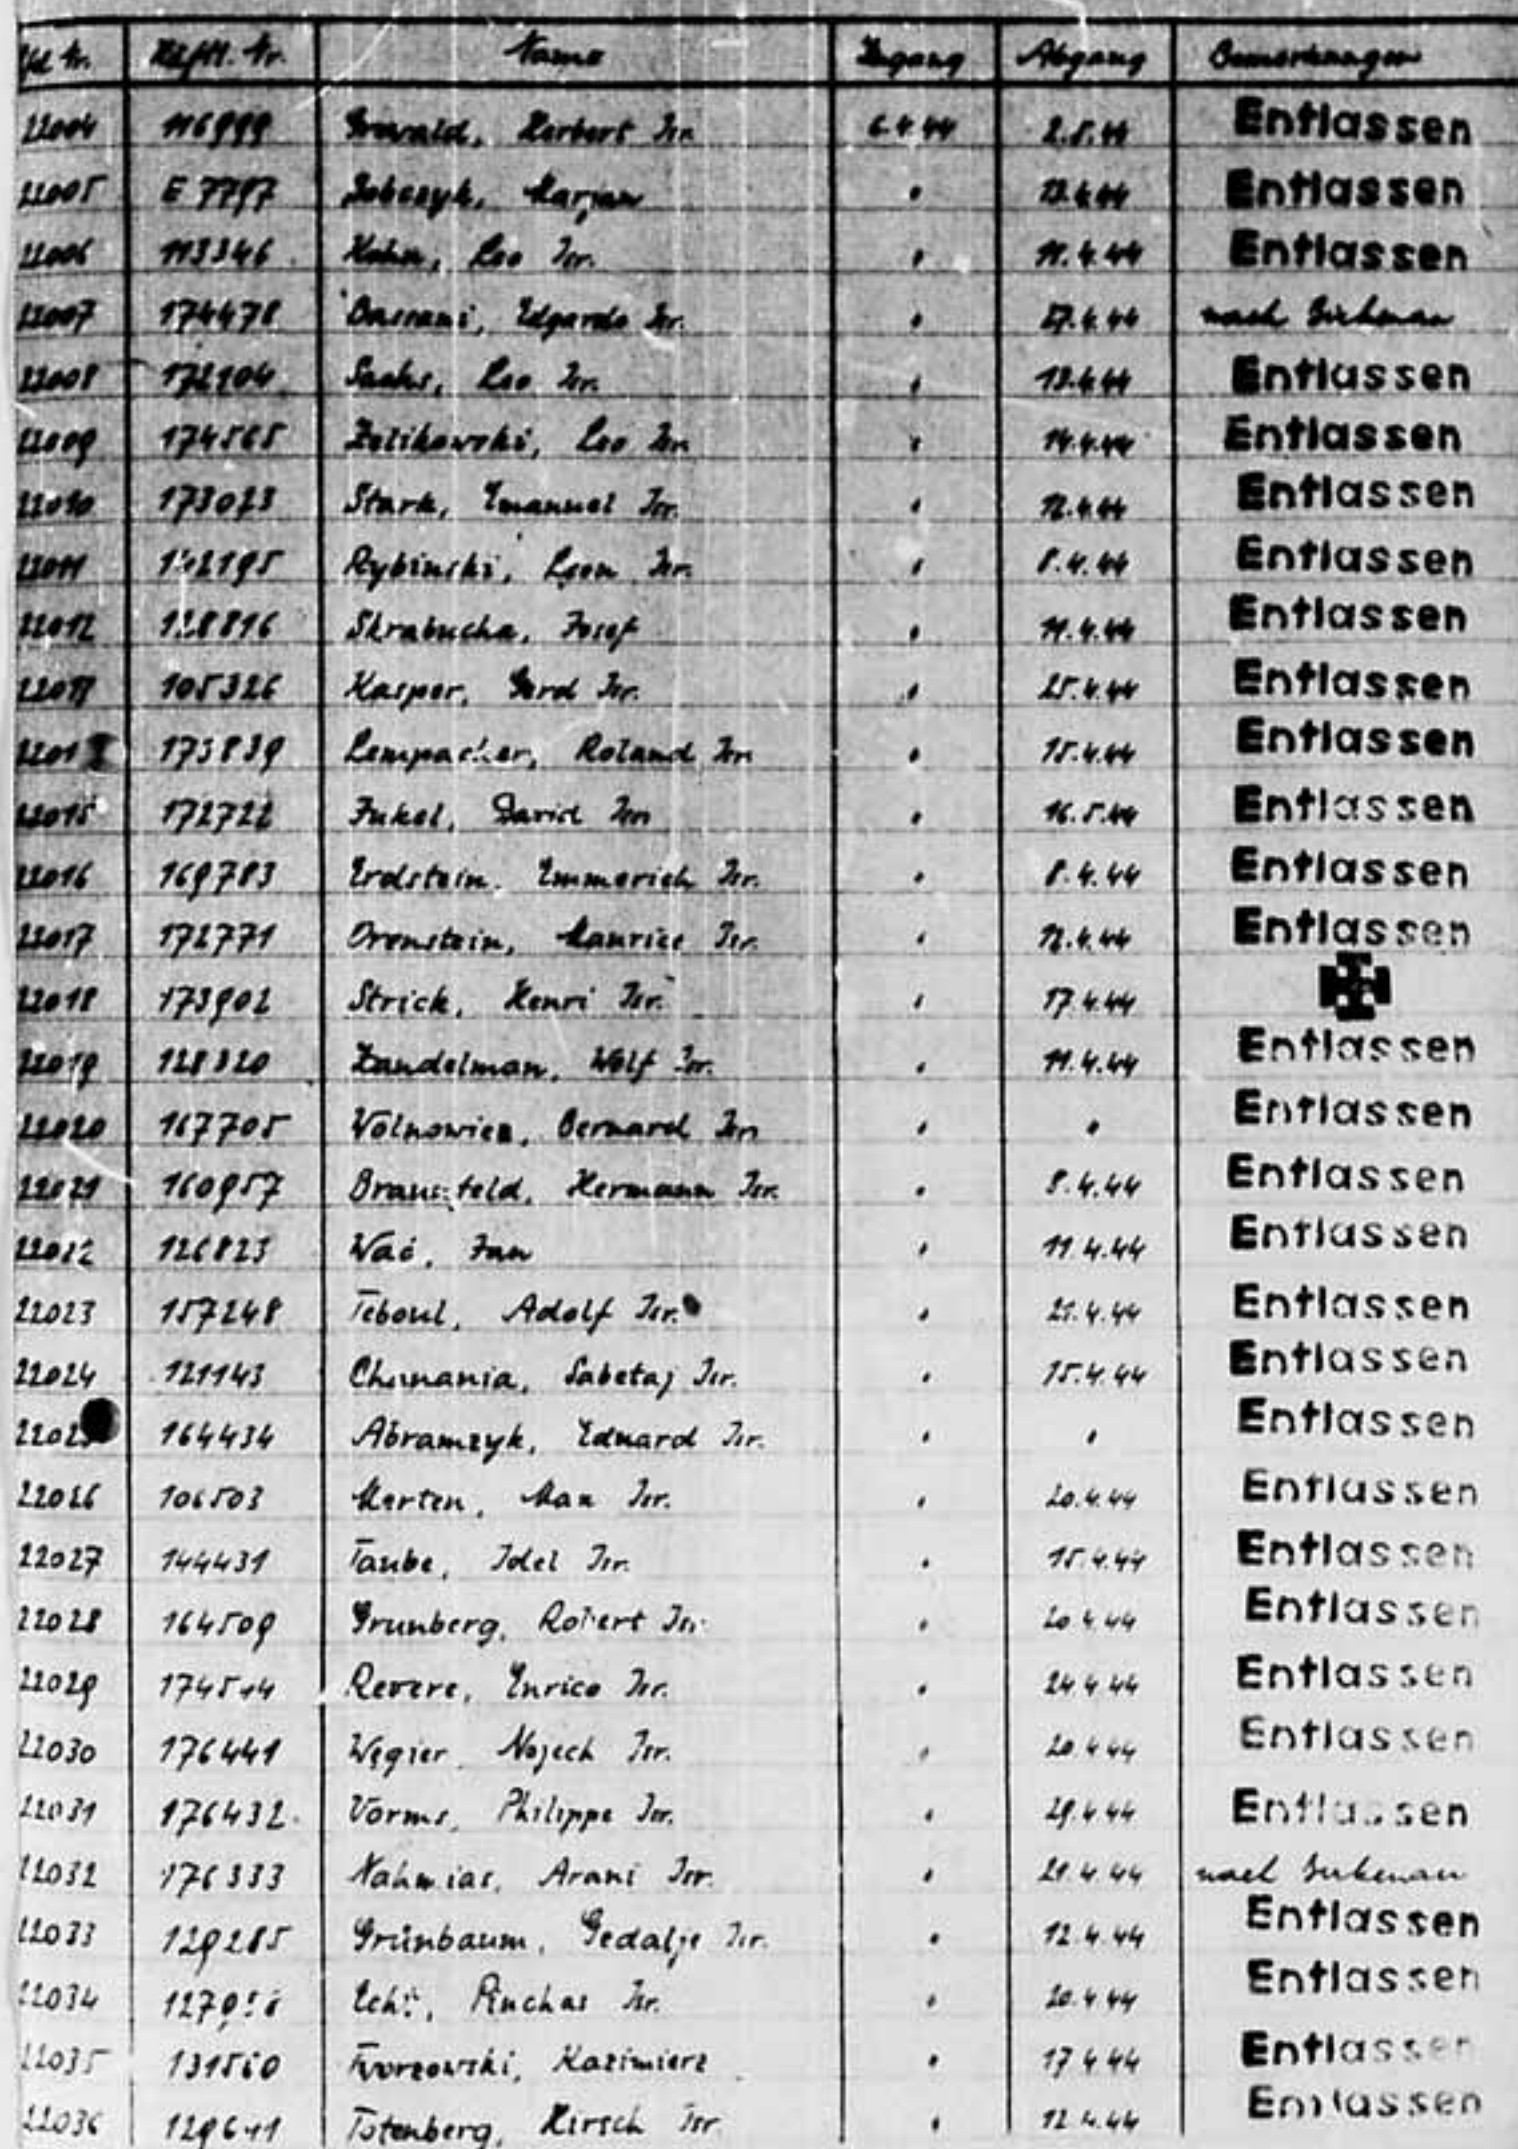 Lfd. Nr. Häftl. Nr. Name Zugang Abgang Bemerkungen
22004 116999 Herbert Isr. 6.4.44 2.5.44 Entlassen
22005 E 7797 Marjan " Entlassen
22006 113346 Leo Isr. " 11.4.44 Entlassen
22007 174478 Bassani, Edgardo Isr. " 27.4.44 nach Birkenau
22008 Sachs, Leo Isr. " Entlassen
22009 174565 Leo Isr. " 14.4.44 Entlassen
22010 173023 Stark, Emanuel Isr. " 12.4.44 Entlassen
22011 Rybinski, Leon Isr. " 8.4.44 Entlassen
22012 Skrabucha, Josef " 11.4.44 Entlassen
105326 Kasper, Gerd Isr. " 25.4.44 Entlassen
173839 Roland Isr. " 15.4.44 Entlassen
22015 172722 Fukel, David Isr. " 16.5.44 Entlassen
22016 169783 Erdstein, Emmerich Isr. " 8.4.44 Entlassen
22017 172771 Orenstein, Maurice Isr. " 12.4.44 Entlassen
22018 173902 Strick, Henri Isr. " 17.4.44
22019 128320 Zandelman, Wolf Isr. " 11.4.44 Entlassen
22020 167705 Wolnowicz, Bernard Isr. " " Entlassen
22021 160957 Braunsfeld, Hermann Isr. " 8.4.44 Entlassen
22022 126823 Jan " 11.4.44 Entlassen
22023 157248 Teboul, Adolf Isr. " 21.4.44 Entlassen
22024 121143 Sabetaj Isr. " 15.4.44 Entlassen
22025 164434 Abramzyk, Eduard Isr. " " Entlassen
22026 106503 Merten, Max Isr. " 20.4.44 Entlassen
22027 144431 Taube, Idel Isr. " 15.4.44 Entlassen
22028 164509 Grunberg, Robert Isr. " 20.4.44 Entlassen
22029 174514 Revere, Enrico Isr. " 24.4.44 Entlassen
22030 176441 Węgier, Nojech Isr. " 20.4.44 Entlassen
22031 176432 Vorms, Philippe Isr. " 29.4.44 Entlassen
22032 176333 Nahmias, Arani Isr. " 21.4.44 nach Birkenau
22033 129285 Grünbaum, Gedalje Isr. " 12.4.44 Entlassen
22034 Pinchas Isr. " 20.4.44 Entlassen
22035 131560 Tworzowski, Kazimierz " 17.4.44 Entlassen
22036 Totenberg, Hirsch Isr. " 12.4.44 Entlassen